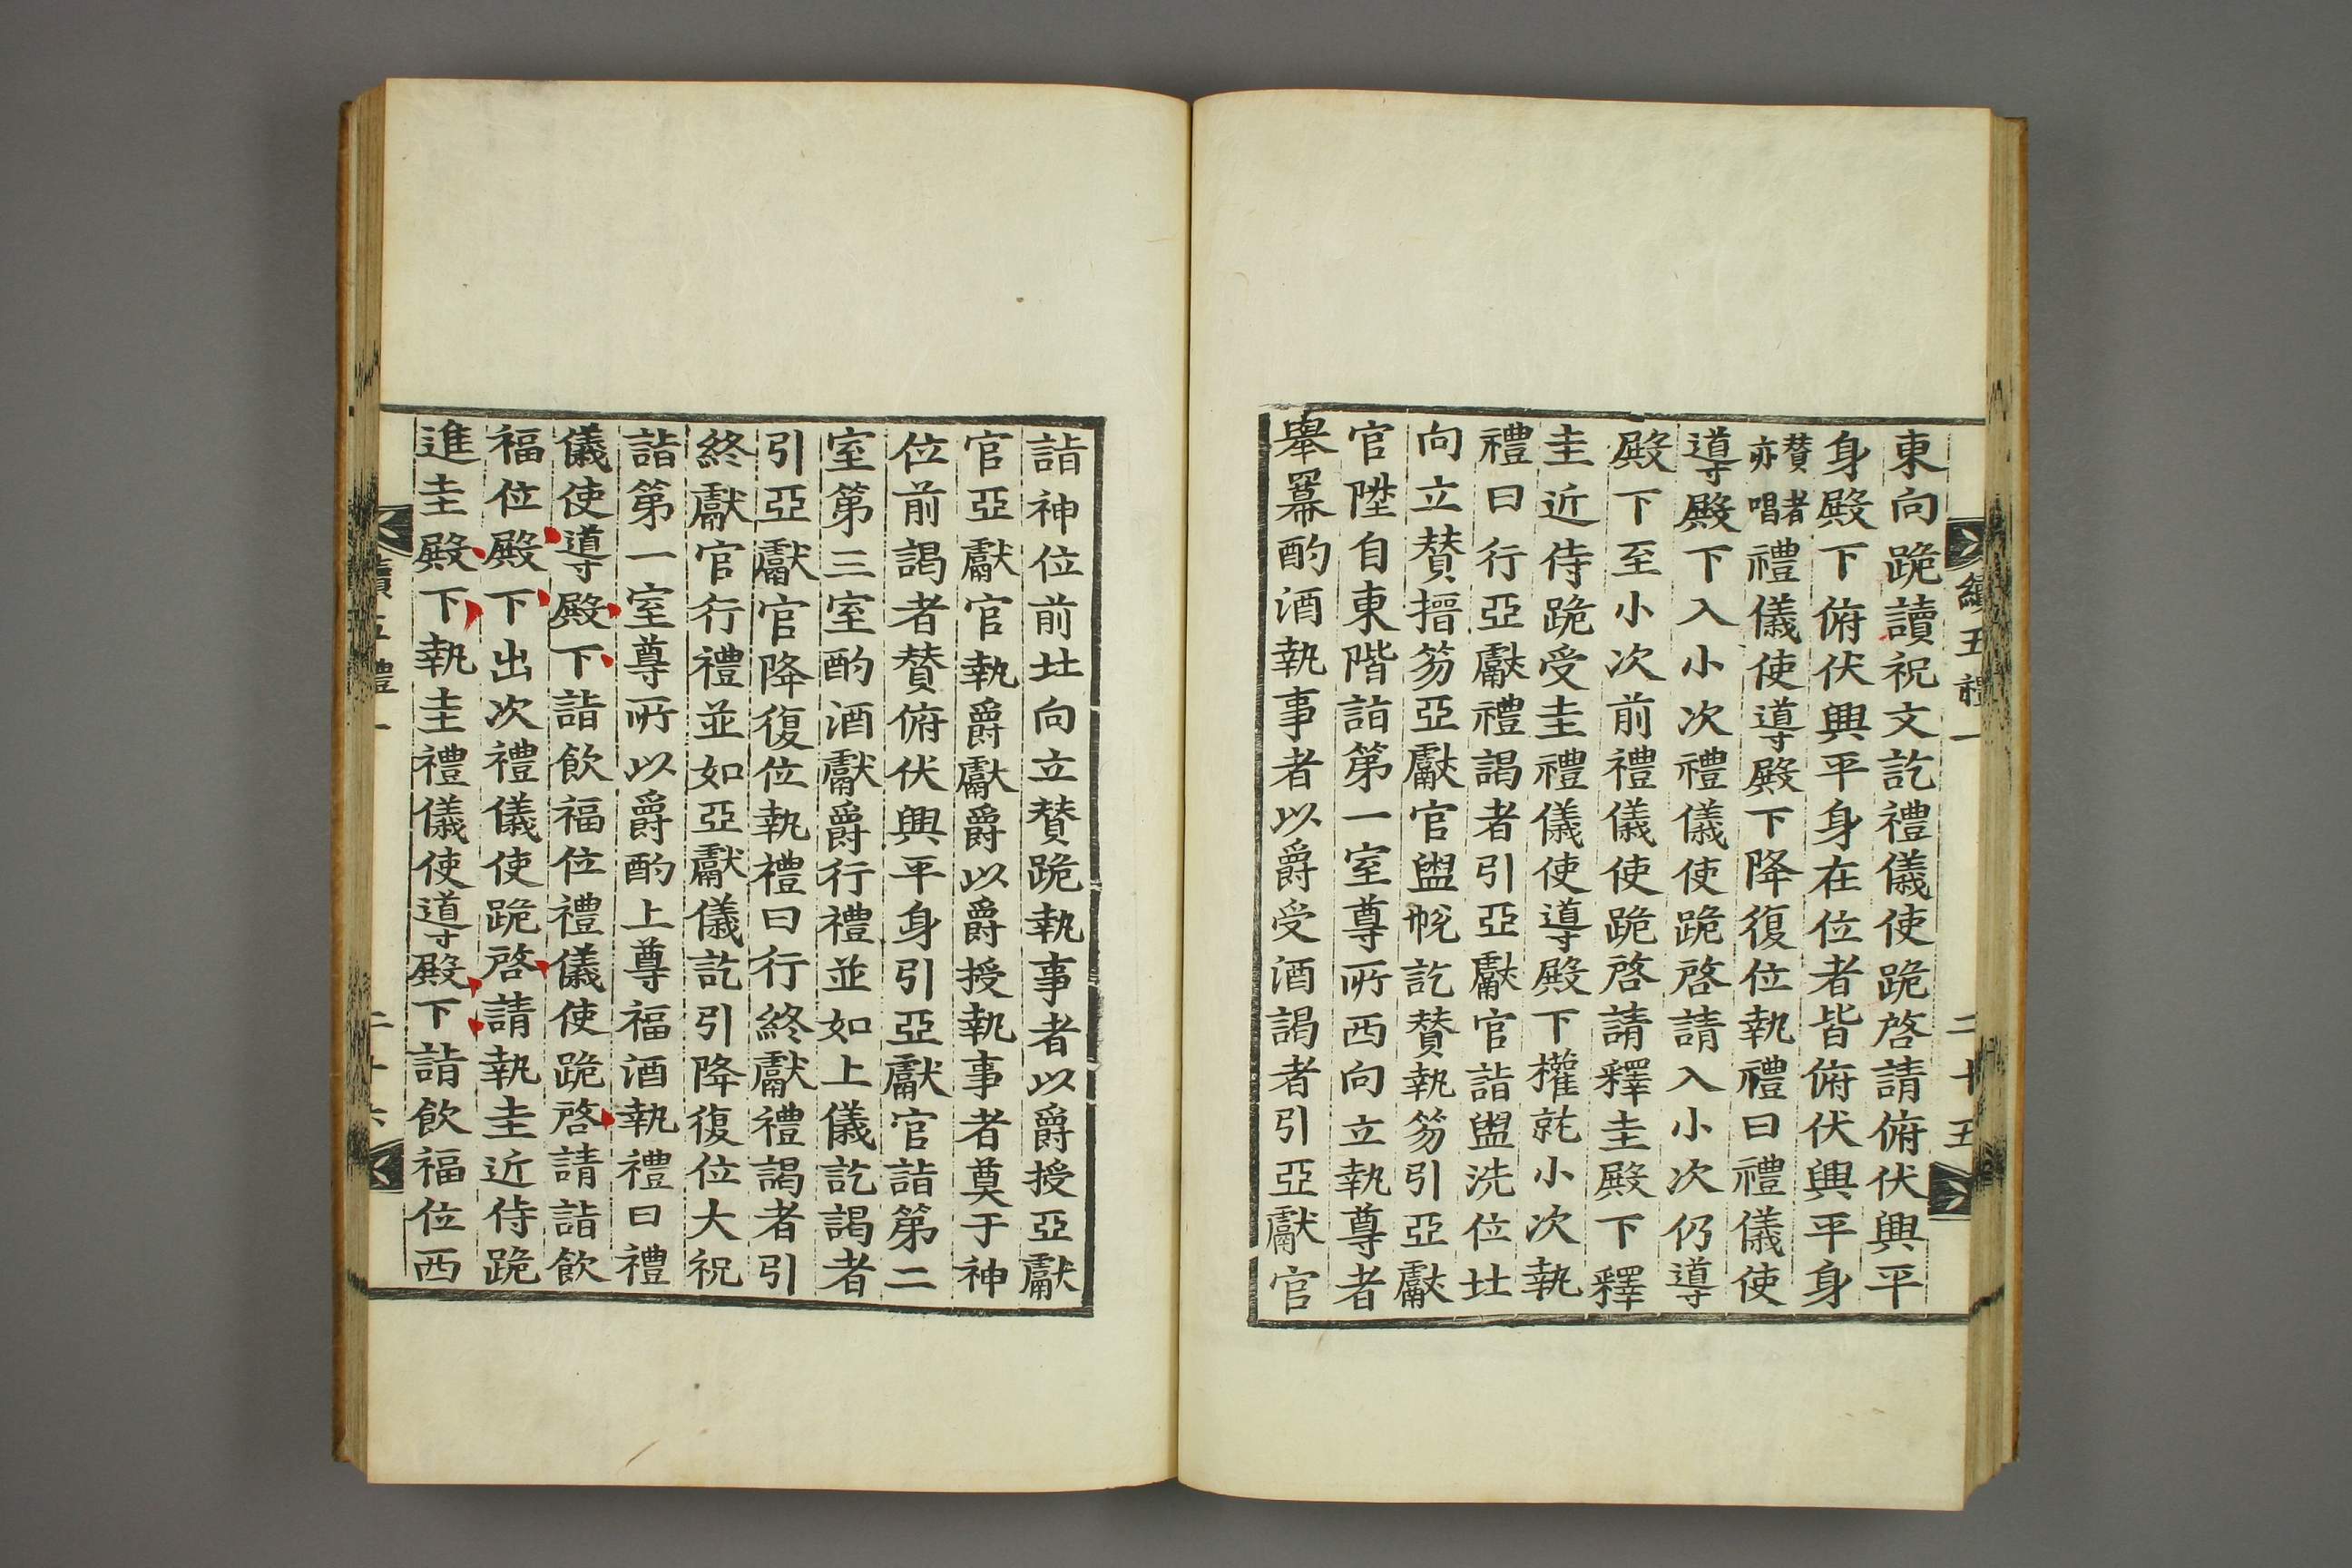 續五禮一
二十五
東向跪讀祝文訖禮儀使跪啓請俯伏興平
身殿下俯伏興平身在位者皆俯伏興平身
贊者亦唱禮儀使導殿下降復位執禮曰禮儀使
導殿下入小次禮儀使跪啓請入小次仍導
殿下至小次前禮儀使跪啓請釋圭殿下釋
圭近侍跪受圭禮儀使導殿下權就小次執
禮曰行亞獻禮謁者引亞獻官詣盥洗位北
向立贊搢笏亞獻官盥帨訖贊執笏引亞獻
官陞自東階詣第一室尊所西向立執尊者
舉羃酌酒執事者以爵受酒謁者引亞獻官
詣神位前北向立贊跪執事者以爵授亞獻
官亞獻官執爵獻爵以爵授執事者奠于神
位前謁者贊俯伏興平身引亞獻官詣第二
室第三室酌酒獻爵行禮並如上儀訖謁者
引亞獻官降復位執禮曰行終獻禮謁者引
終獻官行禮並如亞獻儀訖引降復位大祝
詣第一室尊所以爵酌上尊福酒執禮曰禮
儀使導殿下詣飮福位禮儀使跪啓請詣飮
福位殿下出次禮儀使跪啓請執圭近侍跪
進圭殿下執圭禮儀使導殿下詣飮福位西
續五禮一
二十六